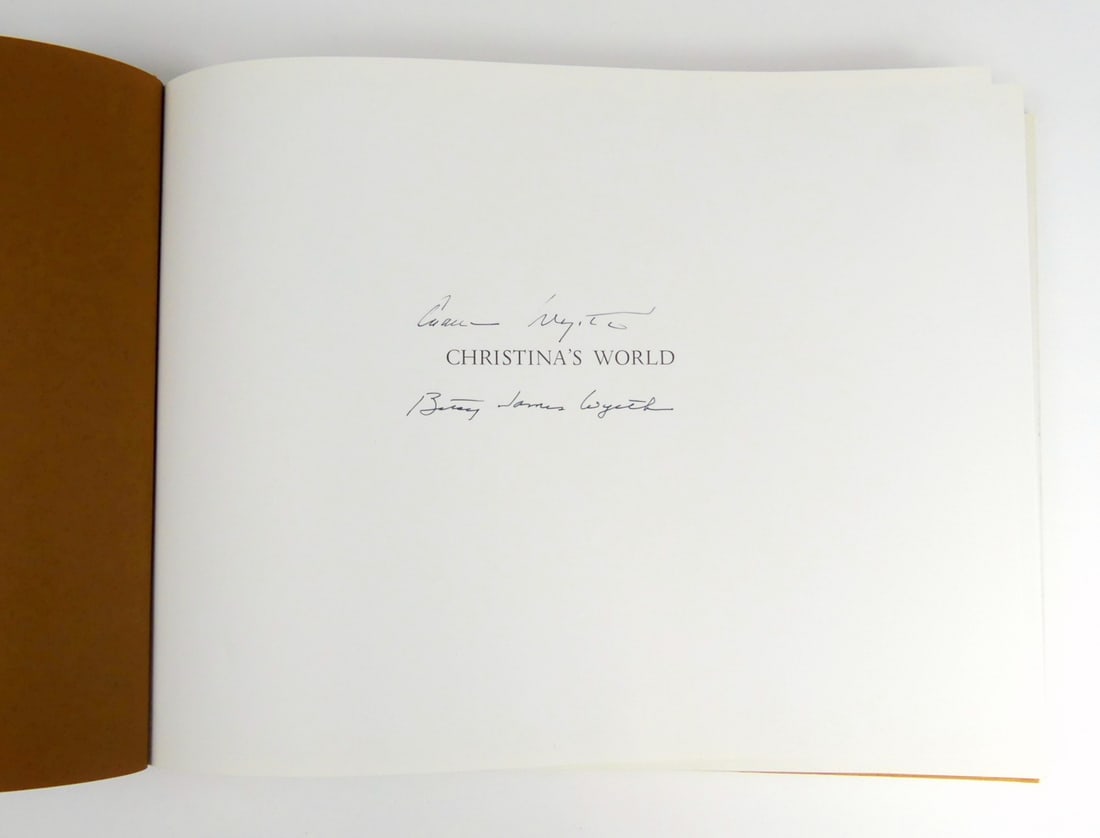 Andrew Wyeth
CHRISTINA'S WORLD
Betsy James Wyeth